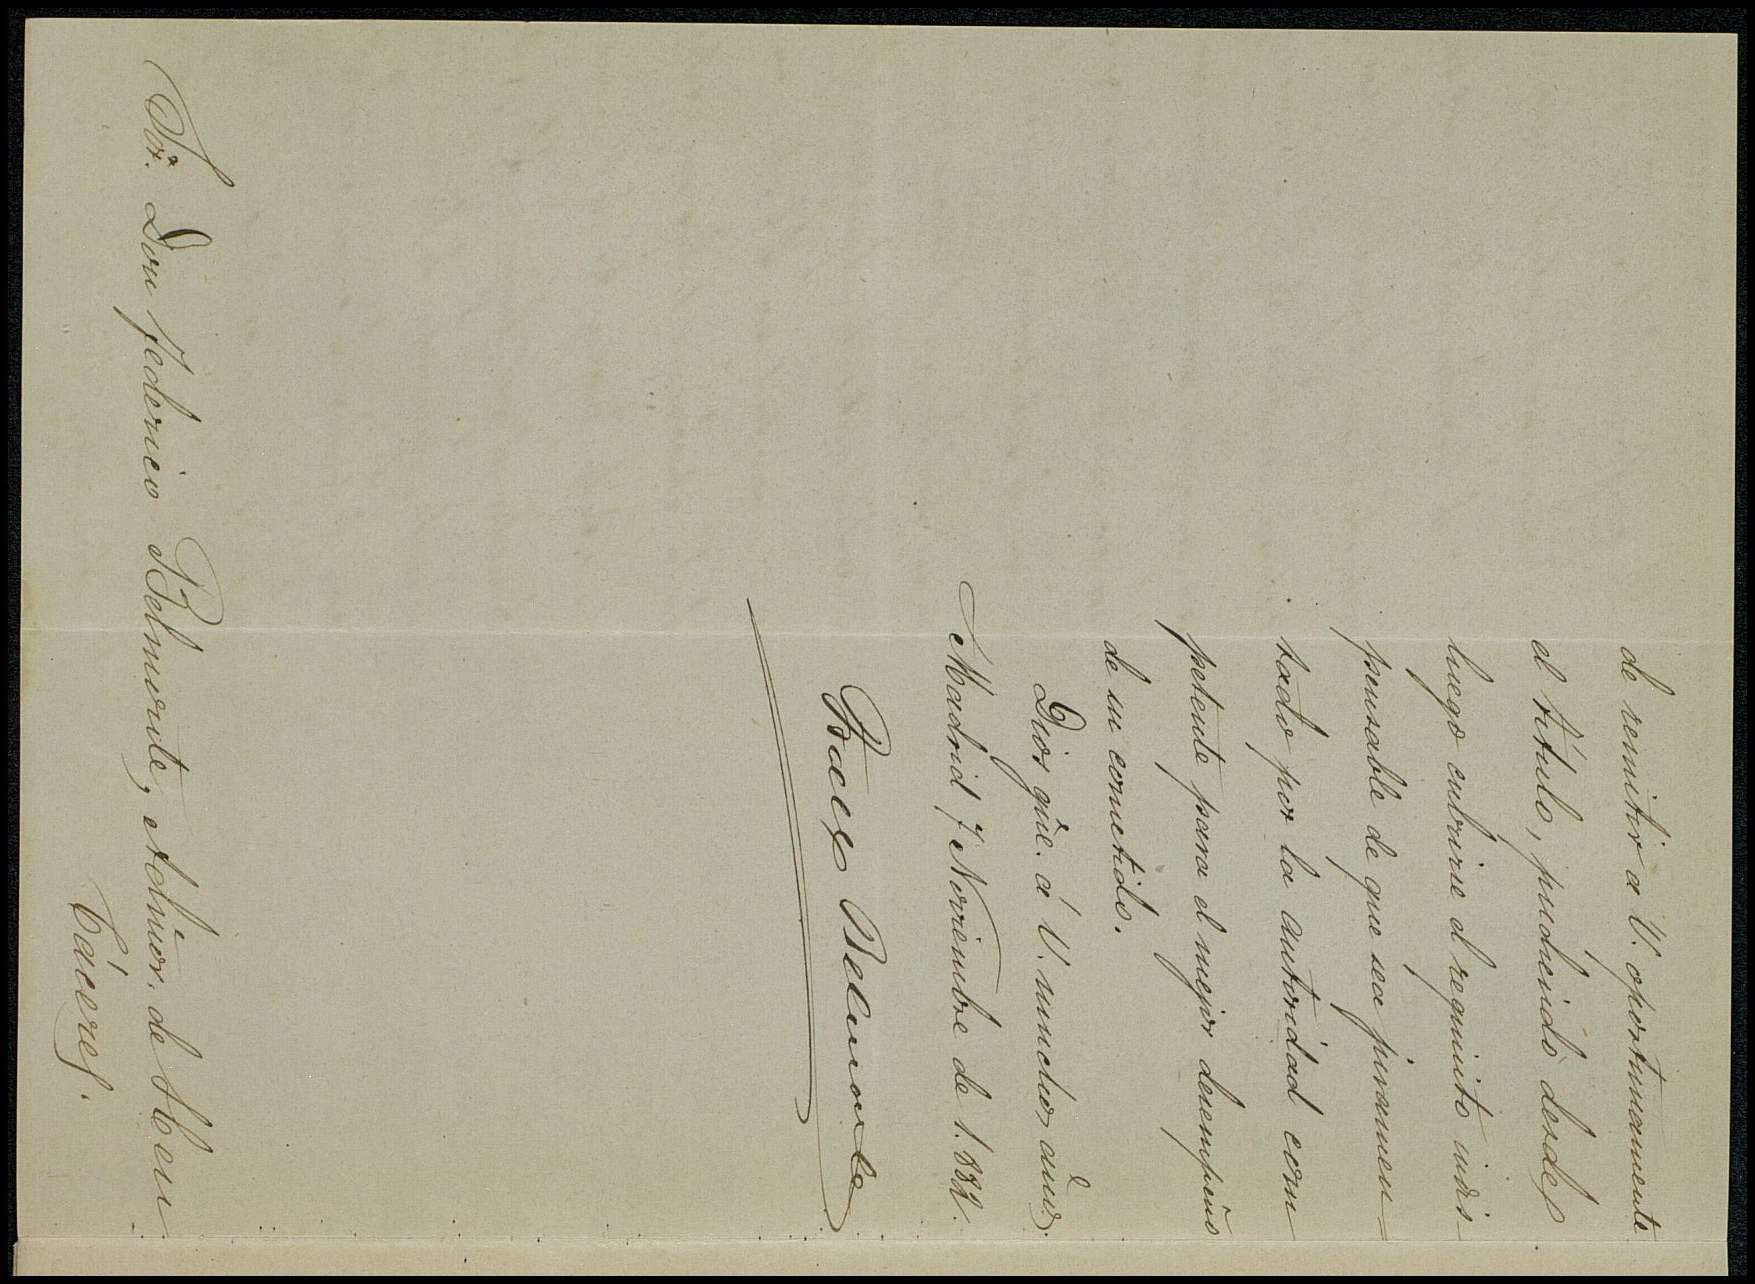 de remitir a V. oportunamente
el título, pudiendo desde
luego cubrirse el requisito indis-
pensable de que sea juramen-
tado por la autoridad com-
petente para el mejor desempeño
de su cometido.
Dios gũe. á V. muchos años.
Madrid 7 Noviembre de 1.882.
Belmonte
Sor. Don Federico Belmonte, Admor. de
Cáceres.